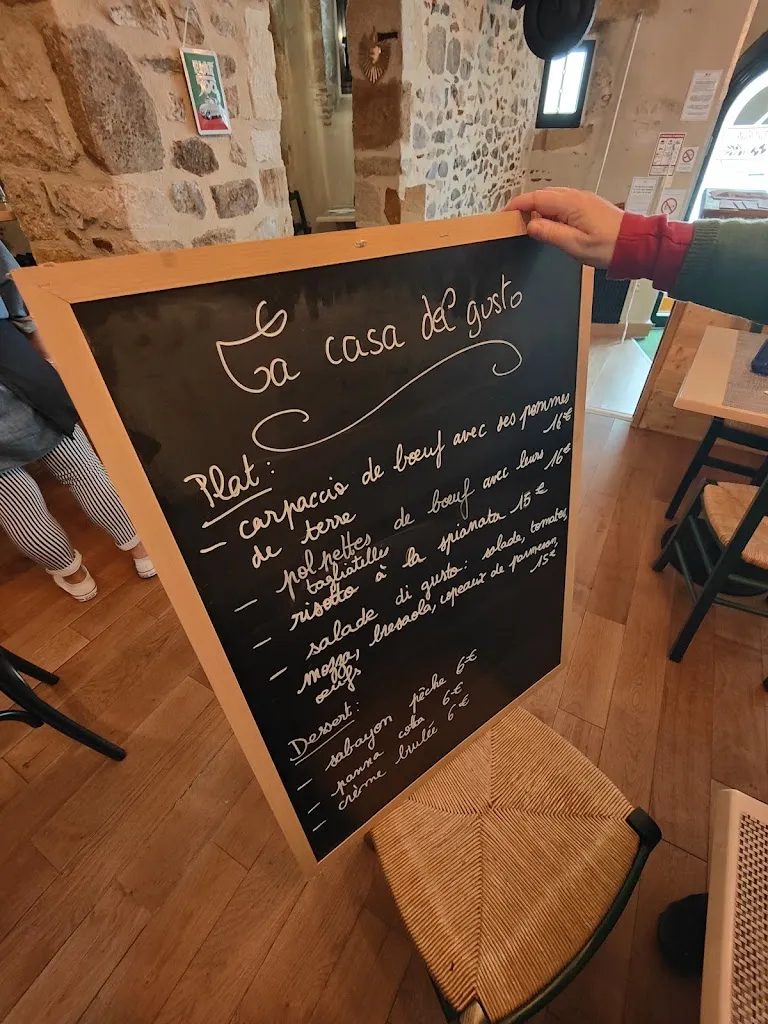 La casa del gusto
Plat:
- carpaccio de bœuf avec ses pommes
de terre 16€
- polpettes de bœuf avec leurs 16€
tagliatelles
- risotto à la spianata 15€
- salade di gusto: salade, tomates,
mozza, bresaola, copeaux de parmesan,
œufs 15€
Dessert:
- sabayon pêche 6€
- panna cotta 6€
- crème brulée 6€